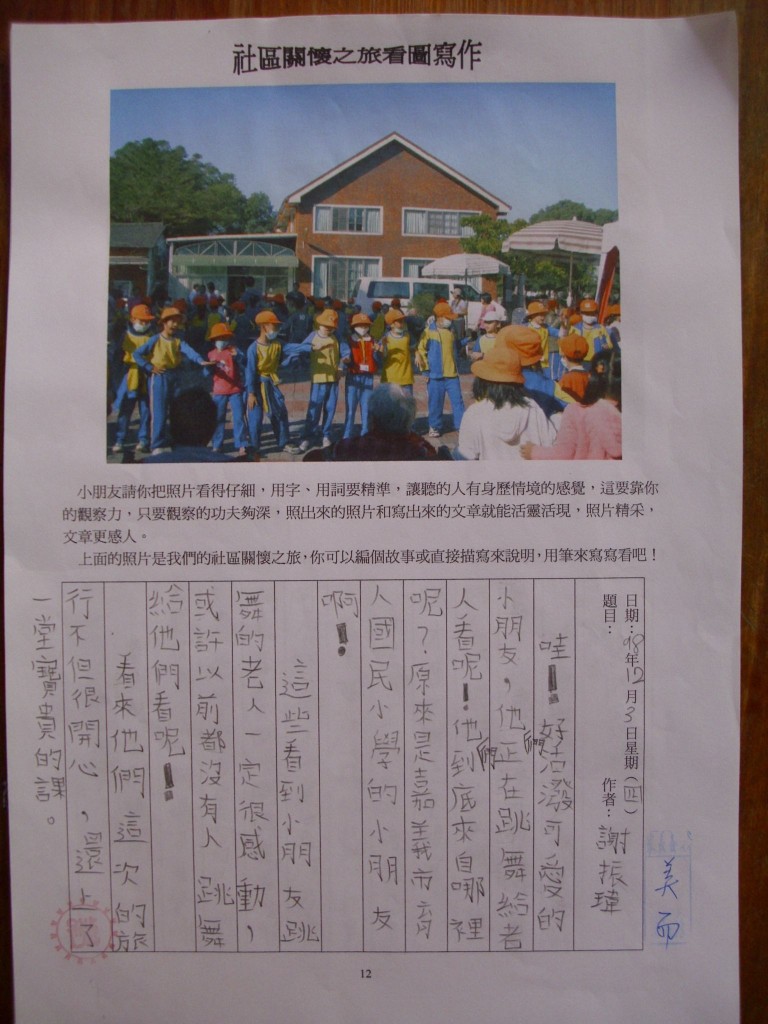 社區關懷之旅看圖寫作
小朋友請你把照片看得仔細，用字、用詞要精準，讓聽的人有身歷情境的感覺，這要靠你
的觀察力，只要觀察的功夫夠深，照出來的照片和寫出來的文章就能活靈活現，照片精采，
文章更感人。
上面的照片是我們的社區關懷之旅，你可以編個故事或直接描寫來說明，用筆來寫寫看吧！
日期：98年12月3日星期（四）
題目：
作者：謝振瑋
哇！好活潑可愛的
小朋友，他們正在跳舞給老
人看呢！他們到底來自哪裡
呢？原來是嘉義市育
人國民小學的小朋友
啊！
這些看到小朋友跳
舞的老人一定很感動，
或許以前都沒有人跳舞
給他們看呢！
看來他們這次的旅
行不但很開心，還上了
一堂寶貴的課。
美
12